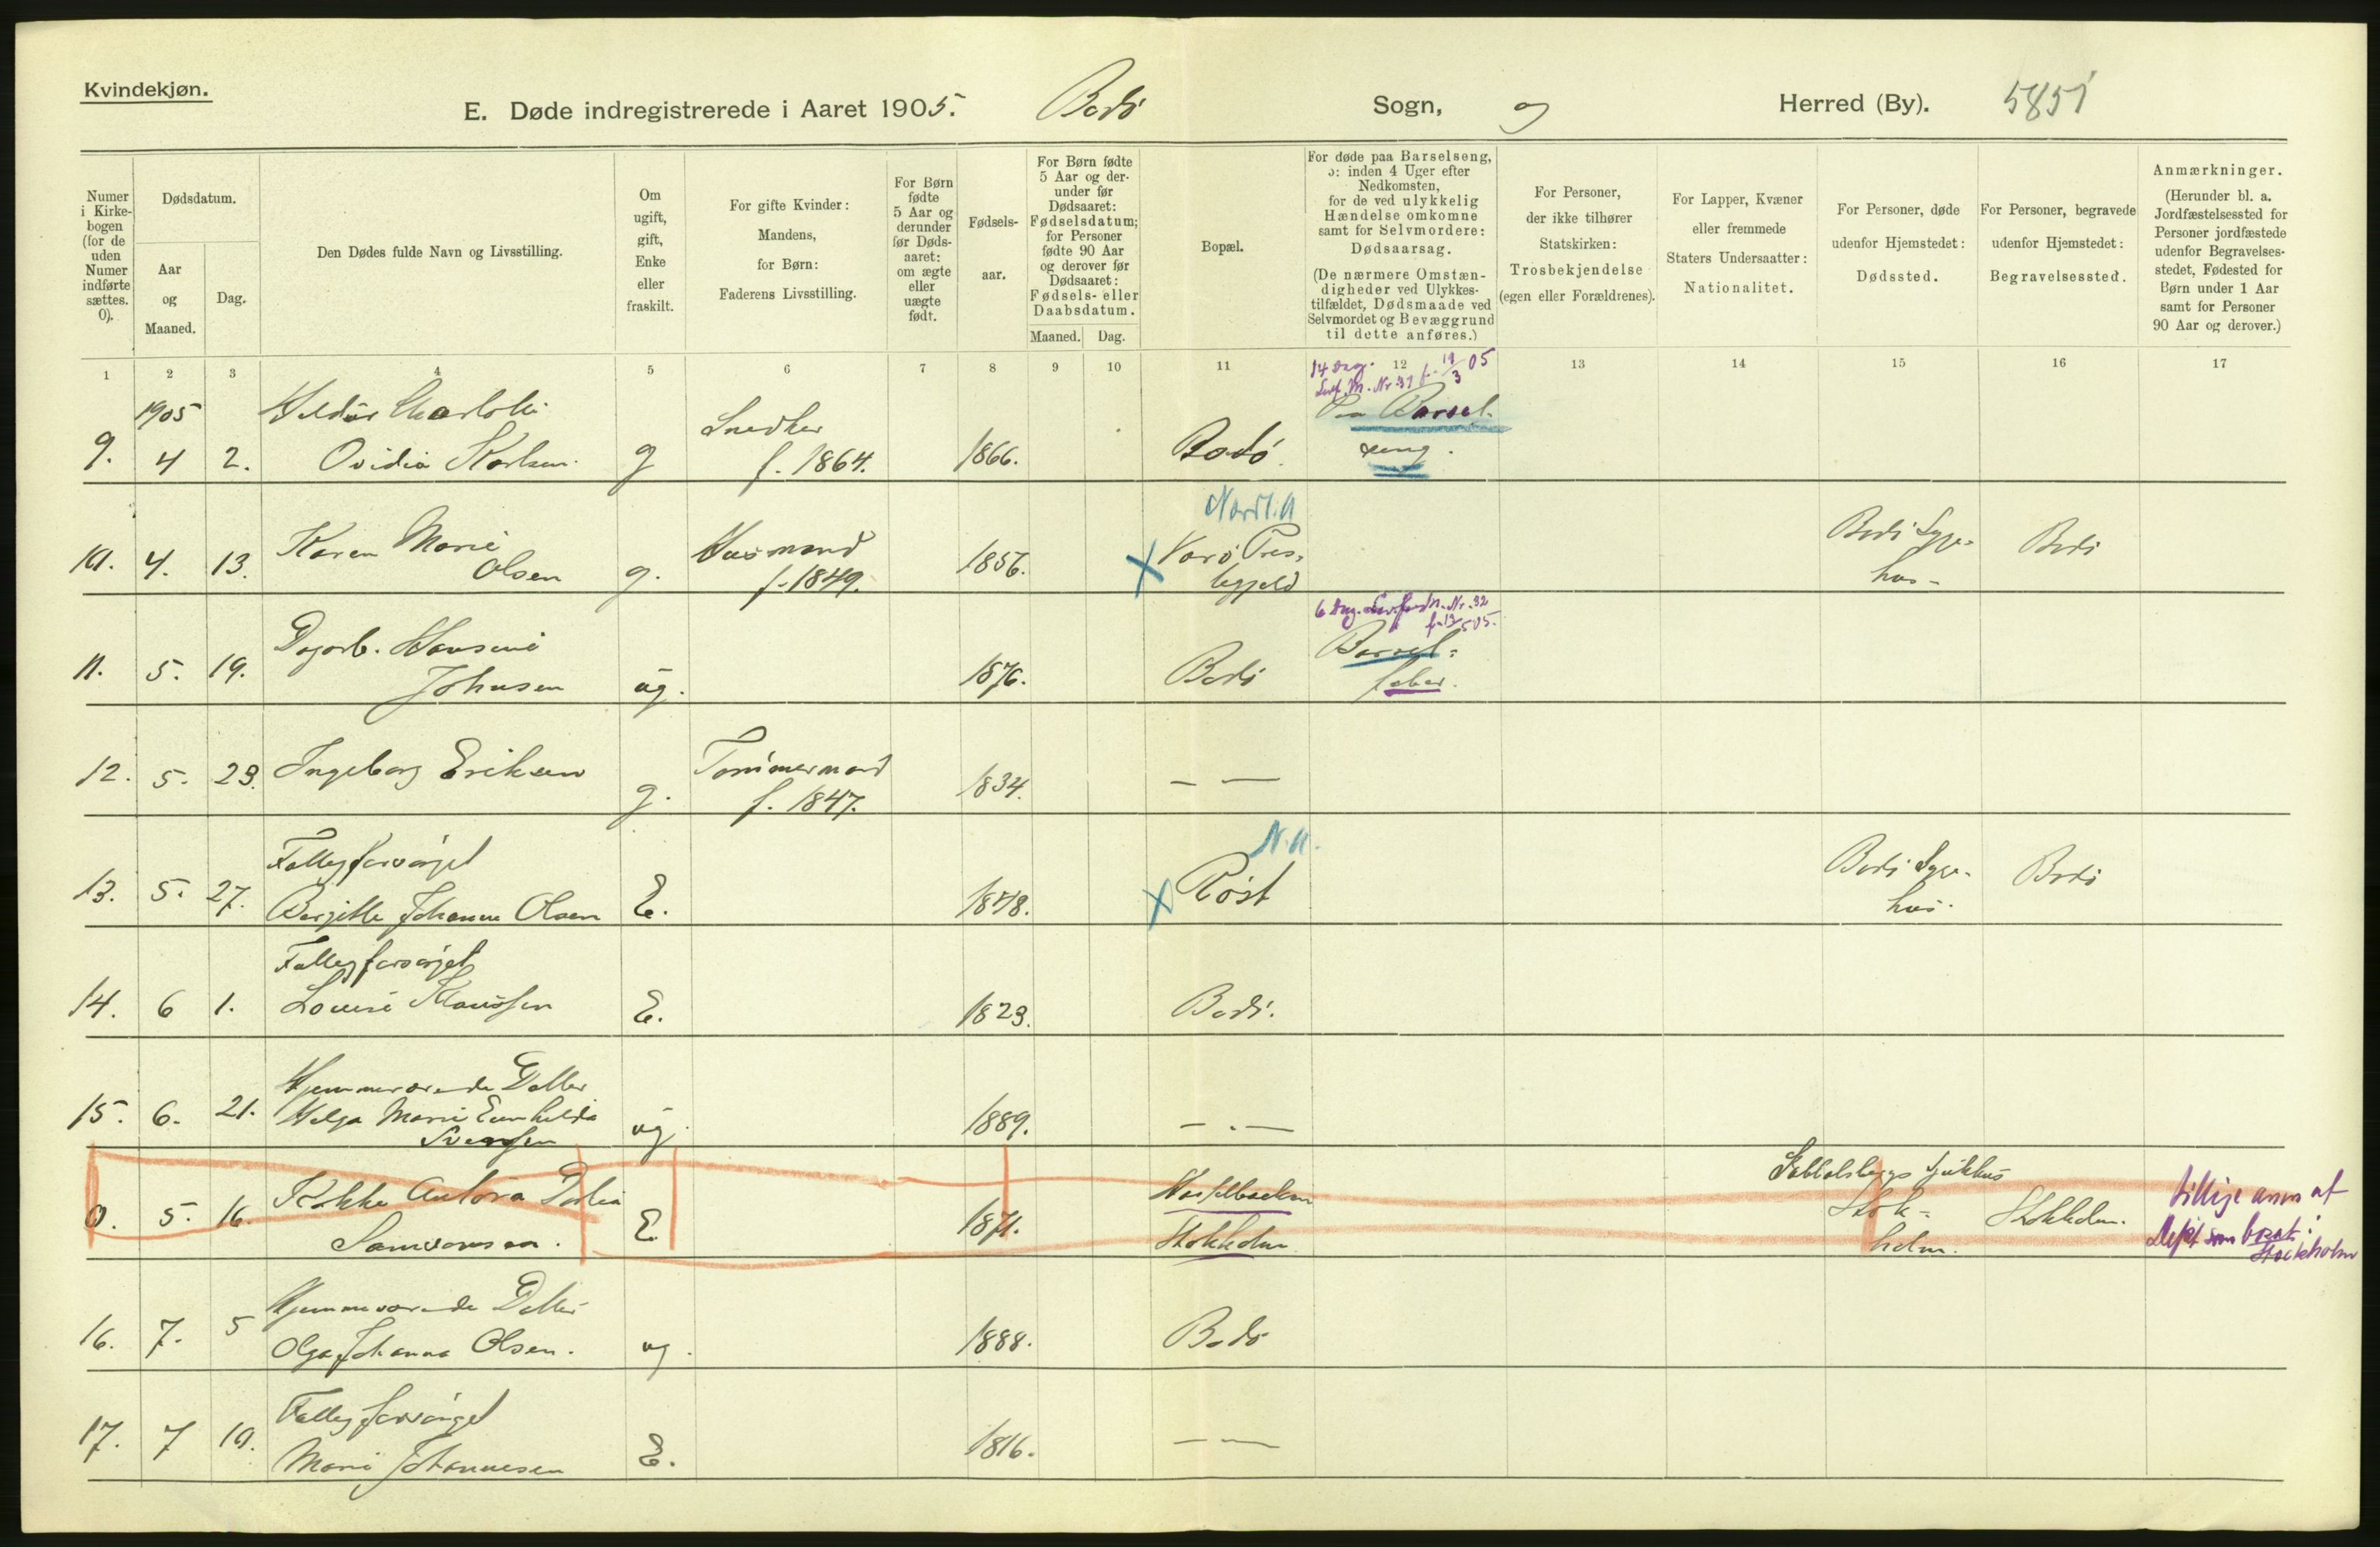 Kvindekjøn.
E. Døde indregistrerede i Aaret 1905. Bodø Sogn, og Herred (By). 5851
Numer i Kirke-bogen (for de uden Numer indførte sættes. 0).
Dødsdatum.
Aar og Maaned.
Dag.
Den Dødes fulde Navn og Livsstilling.
Om ugift, gift, Enke eller fraskilt.
For gifte Kvinder: Mandens, for Børn: Faderens Livsstilling.
For Børn fødte 5 Aar og derunder før Døds-aaret: om ægte eller uægte født.
Fødsels-aar.
For Børn fødte 5 Aar og der-under før Dødsaaret: Fødselsdatum; for Personer fødte 90 Aar og derover før Dødsaaret: Fødsels- eller Daabsdatum.
Maaned. Dag.
Bopæl.
For døde paa Barselseng, ɔ: inden 4 Uger efter Nedkomsten, for de ved ulykkelig Hændelse omkomne samt for Selvmordere: Dødsaarsag.
(De nærmere Omstæn-digheder ved Ulykkes-tilfældet, Dødsmaade ved Selvmordet og Bevæggrund til dette anføres.)
For Personer, der ikke tilhører Statskirken: Trosbekjendelse (egen eller Forældrenes).
For Lapper, Kvæner eller fremmede Staters Undersaatter: Nationalitet.
For Personer, døde udenfor Hjemstedet: Dødssted.
For Personer, begravede udenfor Hjemstedet: Begravelsessted.
Anmærkninger.
(Herunder bl. a. Jordfæstelsessted for Personer jordfæstede udenfor Begravelses-stedet, Fødested for Børn under 1 Aar samt for Personer 90 Aar og derover.)
1 2 3 4 5 6 7 8 9 10 11 12 13 14 15 16 17
14 Dag. Nr. 31 f. 19/3 05
1905
Snedker Paa Barsel-
9. 4 2. Ovidia Karlsen. g f. 1864. 1866. Bodø. seng.
Nordl. A
Karen Marie Husmand Værø Præs- Bodø Syge- Bodø
10. 4. 13. Olsen g. f. 1849. 1856. X tegjeld hus
6 Dag. Nr. 32
Hansine Barsel-
11. 5. 19. Johnsen ug. 1876. Bodø feber.
Tømmermand
12. 5. 23. Ingeborg Eriksen g. f. 1847. 1834. — —
N. A.
Fattigforsørget Bodø Syge- Bodø
13. 5. 27. Bergitte Johanna Olsen E. 1848. X Røst hus.
Fattigforsørget
14. 6 1. Louise Klausen E. 1823. Bodø.
Hjemmeværende Datter
15. 6. 21. Helga Marie ug. 1889. — . —
Svensen
Kokke Aurora Hasselbacken Sabbatsbergs Sjukhus tillige anm af
0. 5. 16. Samsonsen. E. 1871. Stokholm Stok- Stokholm.
holm. som bosat i Stockholm
Hjemmeværende Datter
16. 7. 5 Olga Johanna Olsen. ug. 1888. Bodø
Fattigforsørget
17. 7 19. Marie Johannesen E. 1816. — —